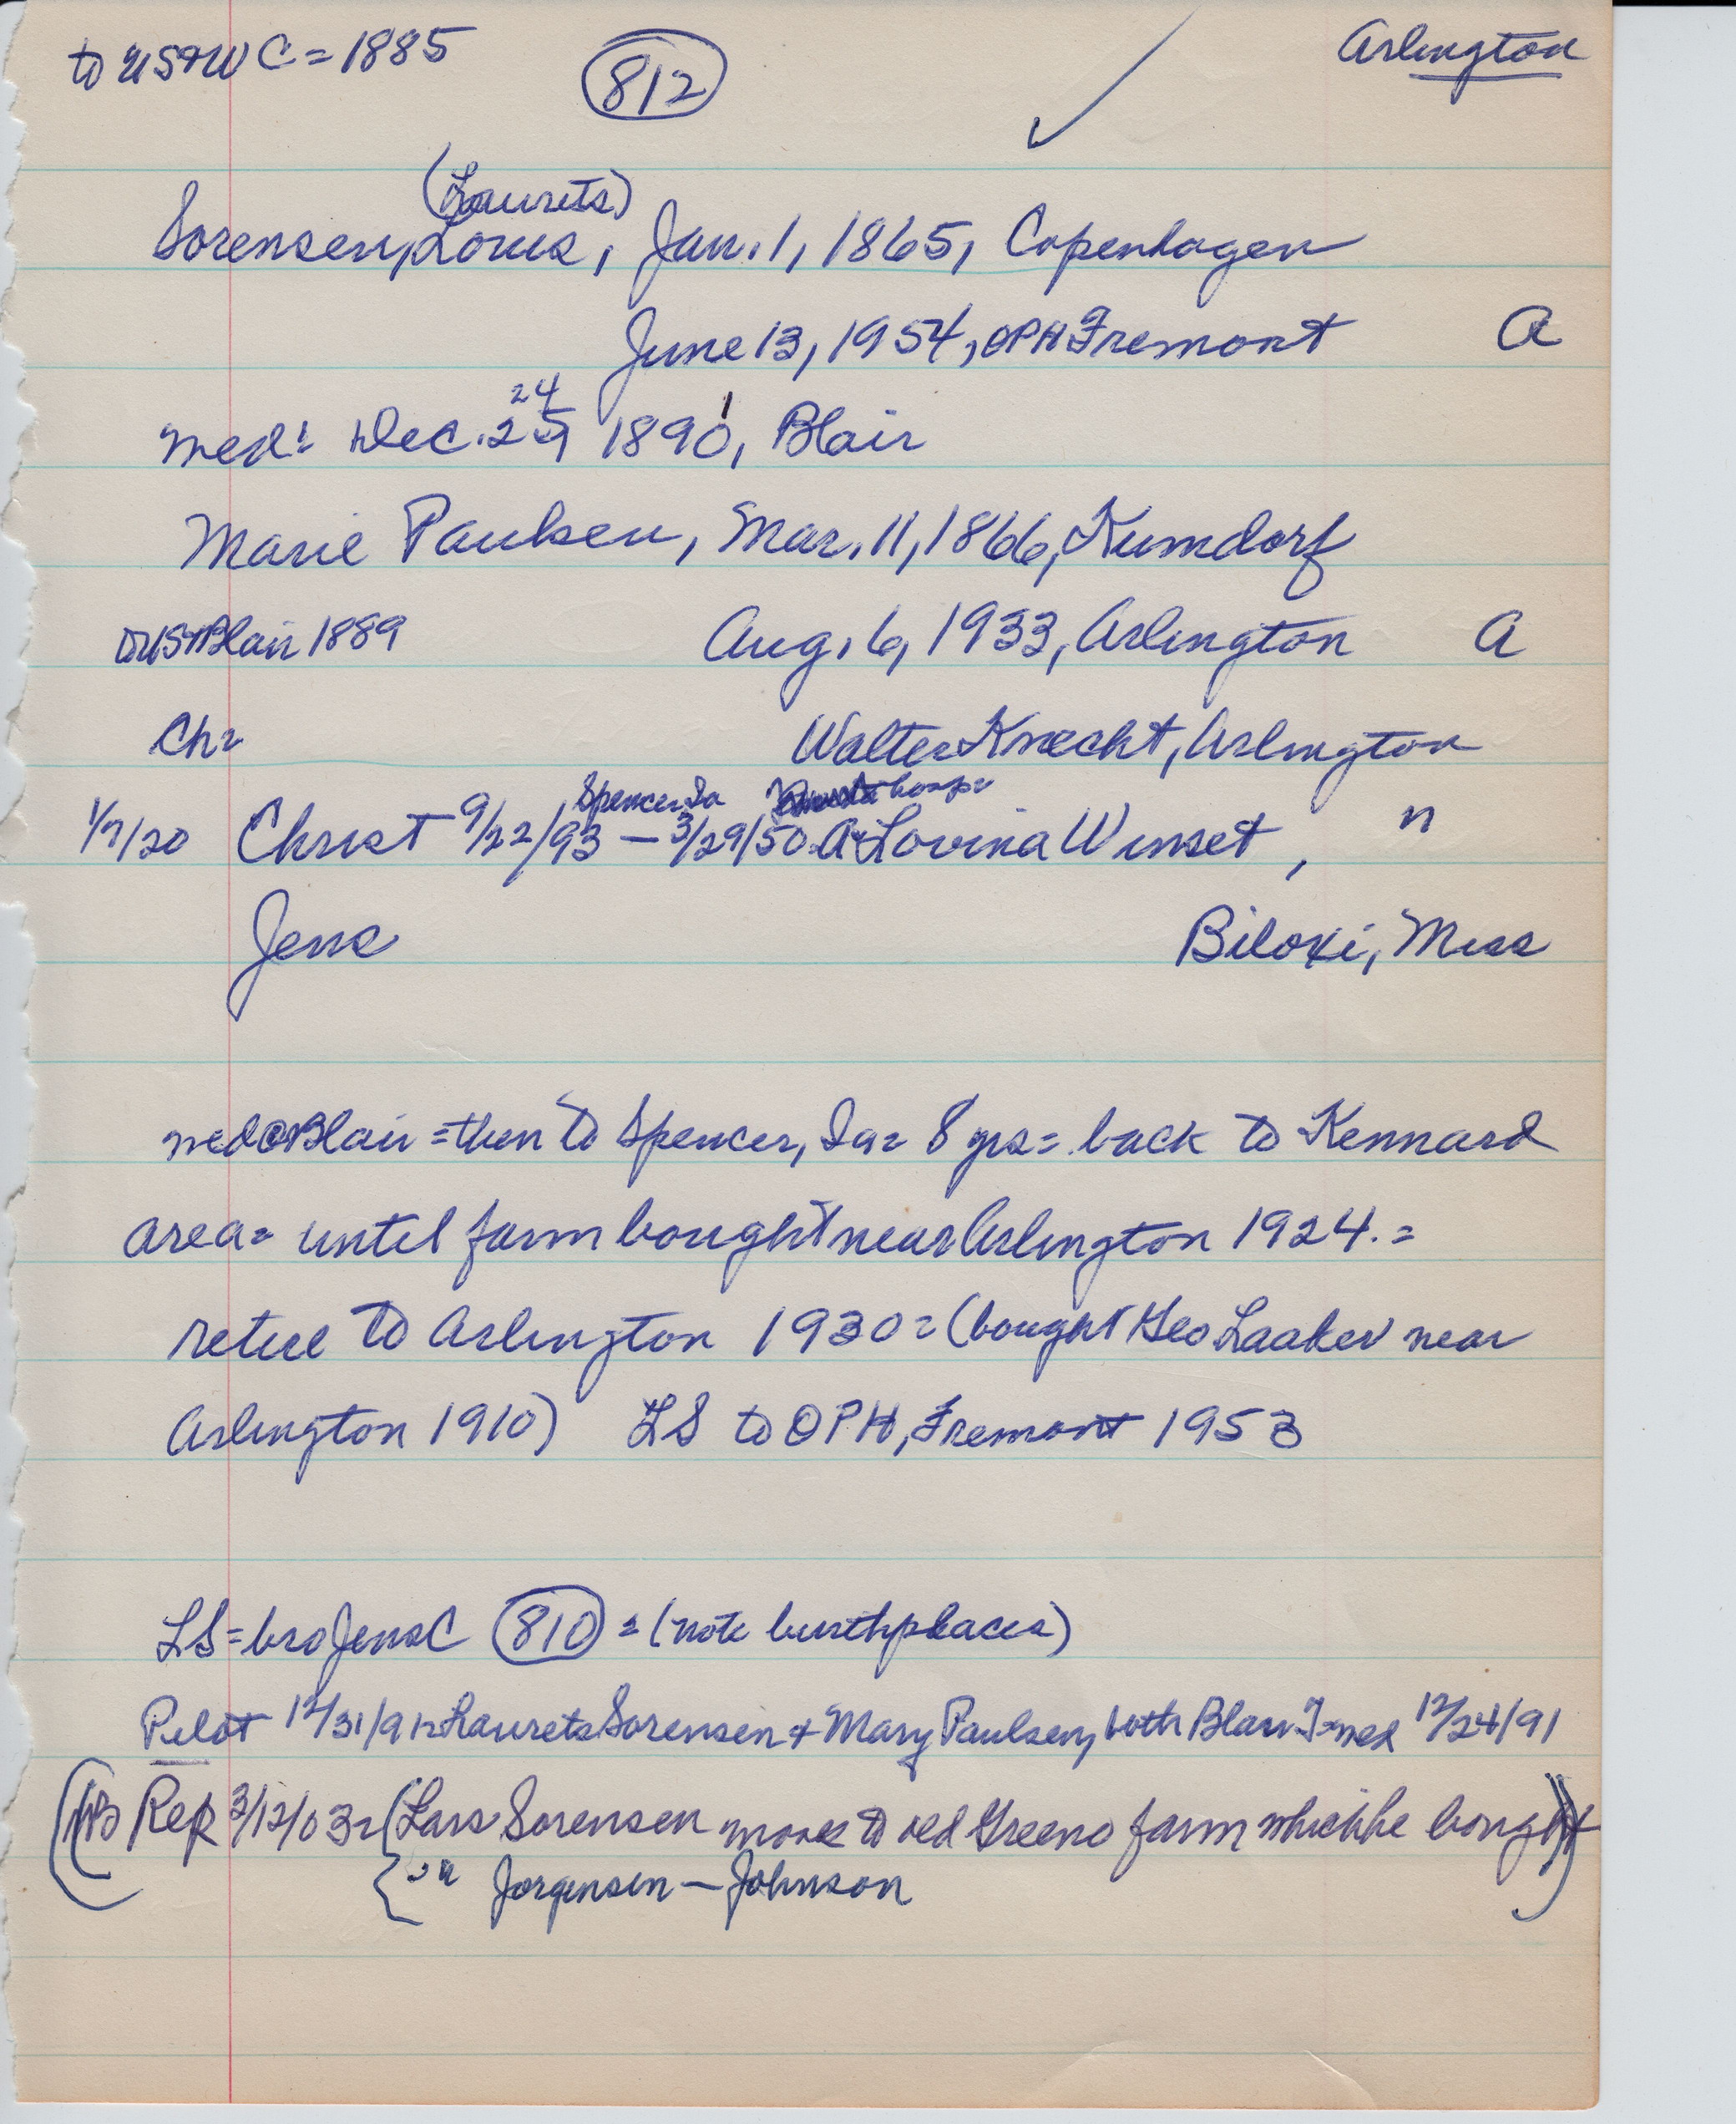 to US+WC = 1885
812
Arlington
(Laurets)
Sorensen, Louis, Jan. 1, 1865, Copenhagen
June 13, 1954, OPH Fremont A
24 1
med: Dec. 25 1890, Blair
Marie Paulsen, Mar. 11, 1866, Kumdorf
to US+Blair 1889 Aug. 6, 1933, Arlington A
Ch= Walter Knecht, Arlington
Spencer, Ia hosp=
1/7/20 Christ 9/22/93 – 3/29/50 A Lovina Winset, "
Jens Biloxi, Miss
med @ Blair = then to Spencer, Ia = 8 yrs = back to Kennard
area = until farm bought near Arlington 1924. =
retire to Arlington 1930 = (bought Geo Laaker near
Arlington 1910) LS to OPH, Fremont 1953
LS = bro Jens C 810 = (note birthplaces)
Pilot 12/31/91 = Laurets Sorensen + Mary Paulsen, both Blair = med 12/24/91
Rep 3/12/03 = (Lars Sorensen moves to old Greeno farm which he bought)
" " Jorgensen – Johnson